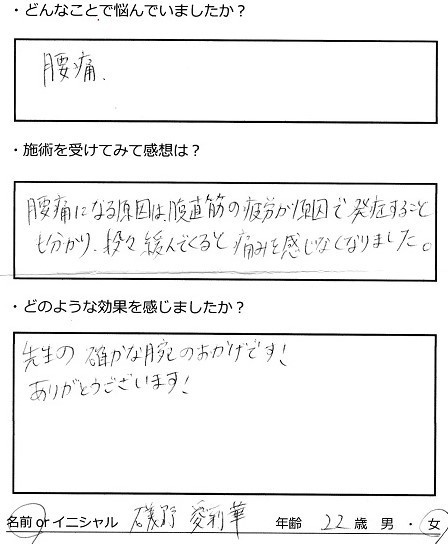 ・どんなことで悩んでいましたか？
腰痛.
・施術を受けてみて感想は？
腰痛になる原因は、腹直筋の疲労が原因で発症すること
も分かり、段々緩んでくると痛みを感じなくなりました。
・どのような効果を感じましたか？
先生の確かな腕のおかげです！
ありがとうございます！
名前 or イニシャル 磯野 愛莉華 年齢 22 歳 男 ・ 女